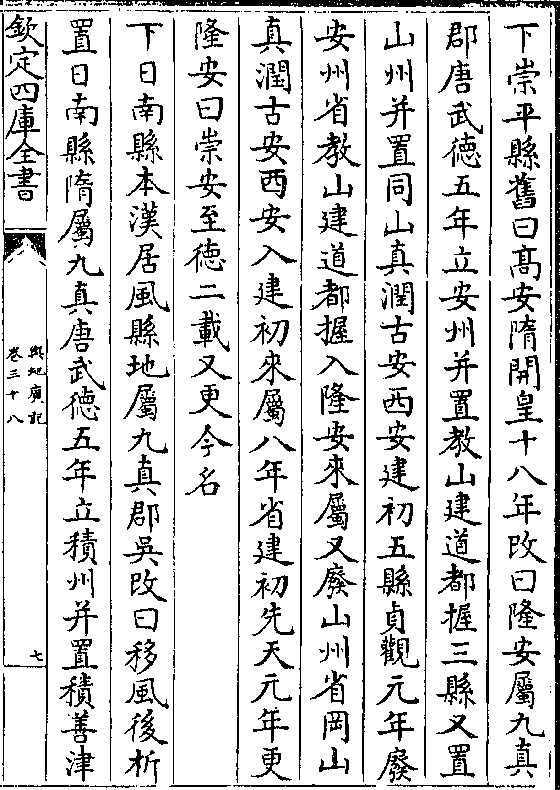 下崇平縣舊曰髙安隋開皇十八年改曰隆安屬九真
郡唐武徳五年立安州并置教山建道都握三縣又置
山州并置同山真潤古安西安建初五縣貞觀元年廢
安州省教山建道都握入隆安來屬又廢山州省岡山
真潤古安西安入建初來屬八年省建初先天元年更
隆安曰崇安至徳二載又更今名
下日南縣本漢居風縣地屬九真郡吳改曰移風後析
置日南縣隋屬九真唐武徳五年立積州并置積善津
欽定四庫全書
輿地廣記
卷三十八
七